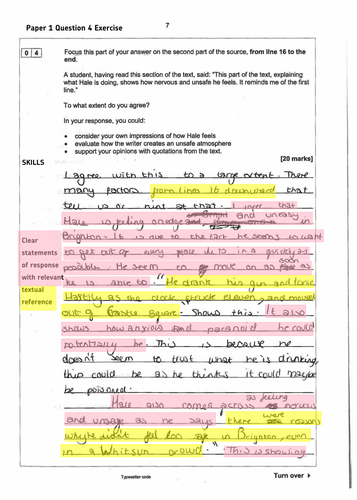 Paper 1 Question 4 Exercise
7
0 4
Focus this part of your answer on the second part of the source, from line 16 to the
end.
A student, having read this section of the text, said: "This part of the text, explaining
what Hale is doing, shows how nervous and unsafe he feels. It reminds me of the first
line."
To what extent do you agree?
In your response, you could:
• consider your own impressions of how Hale feels
• evaluate how the writer creates an unsafe atmosphere
• support your opinions with quotations from the text.
[20 marks]
SKILLS
Clear
statements
of response
with relevant
textual
reference
I agree with this to a large extent. There
many factors from lines 16 downward that
tell us or hint at that. I infer that
Hale is feeling on edge and uneasy in
Brighton. It is due to the fact he seems to want
to get out of every place he is in as quickly as
possible. He seem to move on as soon as
he is able to. "He drank his gin and tonic
Hastily as the clock struck eleven, and moved
out of Castle Square." Shows this. It also
shows how anxious and paranoid he could
potentially be. This is because he
doesn't seem to trust what he is drinking,
this could be as he thinks it could maybe
be poisoned.
Hale also comes across as feeling nervous
and unsafe as he says "there were reasons
why he didn't feel too safe in Brighton, even
in a Whitsun crowd." This is showing
Typesetter code
Turn over ►